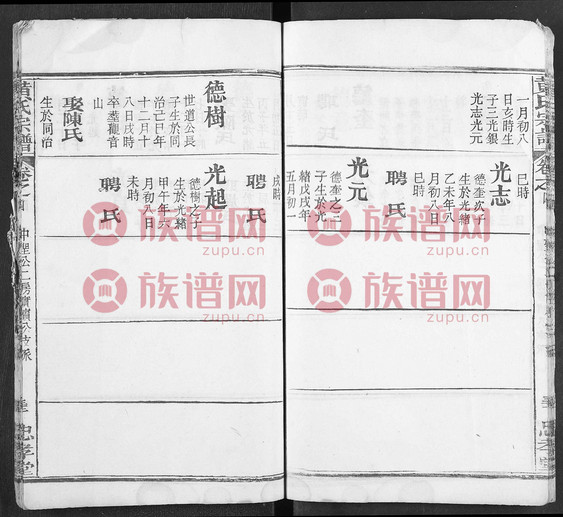 黃氏宗譜
一月初八
日亥時生
子三光銀
光志光元
巳時
光志
德奎次子
生於光緒
乙未年八
月初八日
巳時
聘 氏
光元
德奎之三
子生於光
緒戊戌年
五月初一
忠孝堂
德樹
世道公長
子生於同
治己巳年
十二月十
八日戌時
卒塟觀音
山
娶陳氏
生於同治
戌時
聘 氏
光起
德樹之子
生於光緒
甲午年六
月初八日
未時
聘 氏
黃氏宗譜 卷之四
忠孝堂
族谱网
zupu.cn
族谱网
zupu.cn
族谱网
zupu.cn
族谱网
zupu.cn